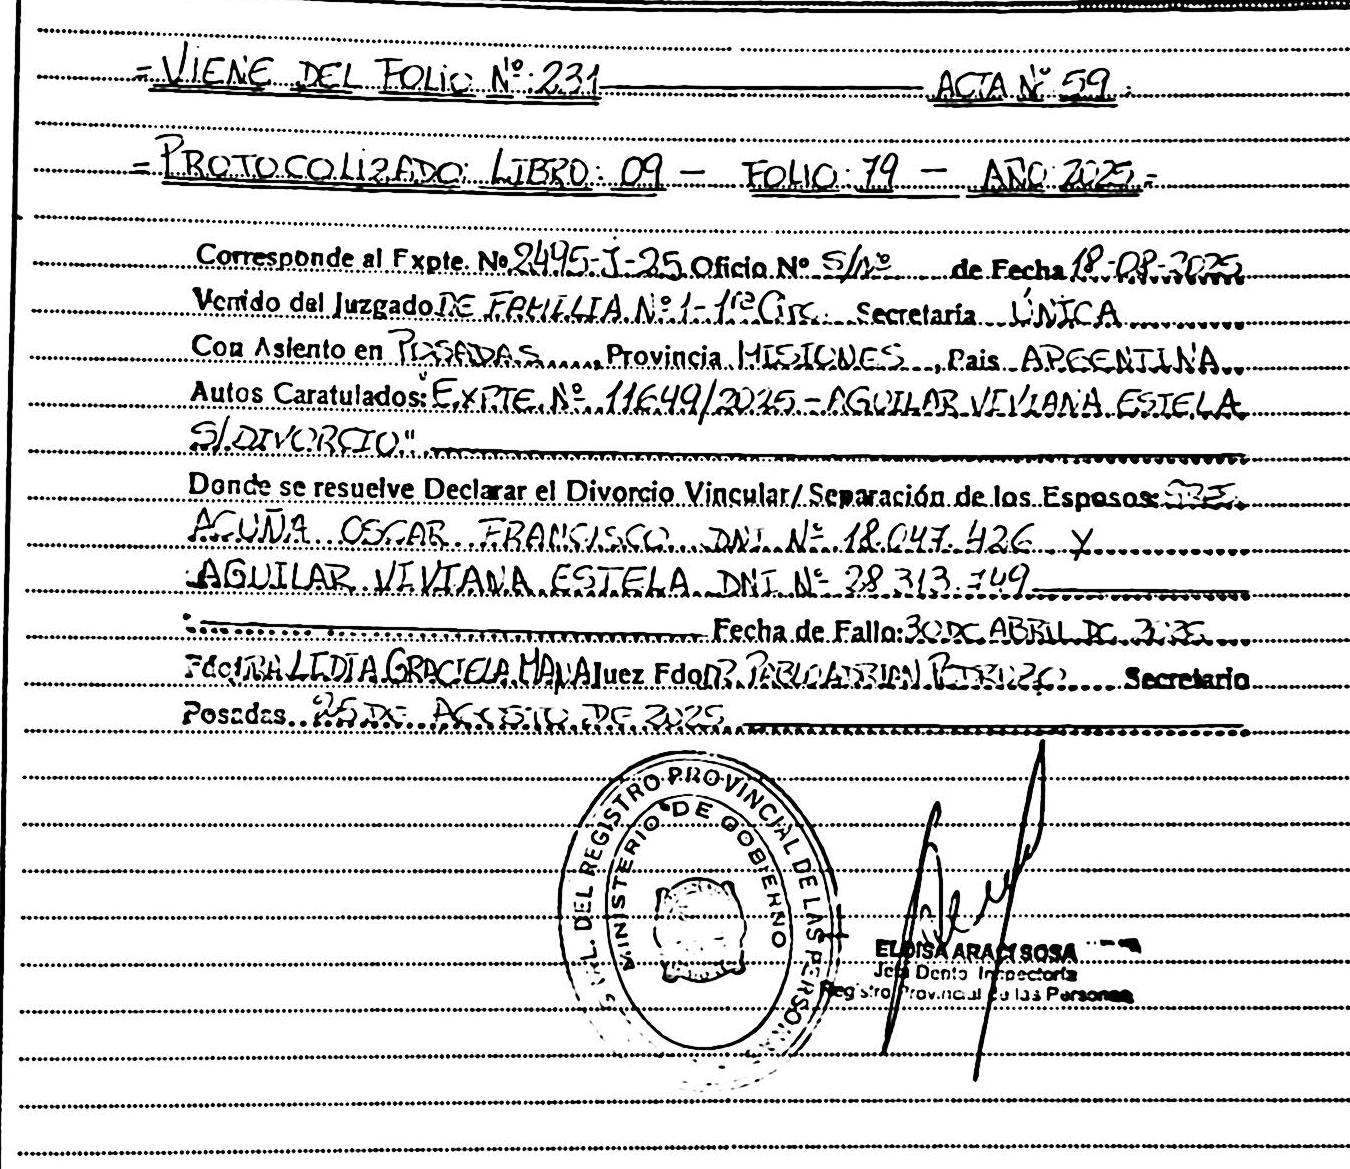 = VIENE DEL FOLIO Nº: 231 ACTA Nº 59.
= PROTOCOLIZADO: LIBRO: 09 - FOLIO: 79 - AÑO 2025 =
Corresponde al Expte. Nº 2495-J-25 Oficio Nº S/Nº de Fecha 18-08-2025
Venido del Juzgado DE FAMILIA Nº 1 - 1ra Circ. Secretaría ÚNICA
Con Asiento en POSADAS, Provincia MISIONES, Pais ARGENTINA
Autos Caratulados: "EXPTE. Nº 11649/2025 - AGUILAR VIVIANA ESTELA
S/ DIVORCIO"
Donde se resuelve Declarar el Divorcio Vincular/ Separación de los Esposos: SRES.
ACUÑA OSCAR FRANCISCO DNI Nº 18.047.426 Y
AGUILAR VIVIANA ESTELA DNI Nº 28.313.749
Fecha de Fallo: 30 DE ABRIL DE 2025
Fdo: DRA LIDIA GRACIELA Juez Fdo: DR. PABLO ADRIAN Secretario
Posadas 25 DE AGOSTO DE 2025
DEL REGISTRO PROVINCIAL DE LAS PERSONAS
MINISTERIO DE GOBIERNO
ELOISA ARACI SOSA
Jefa Dpnto. Inspectoría
Registro Provincial de las Personas